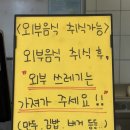 <외부음식 취식가능>
외부음식 취식 후,
"외부 쓰레기는
가져가 주세요!!"
(만두, 김밥, 버거 등등..)